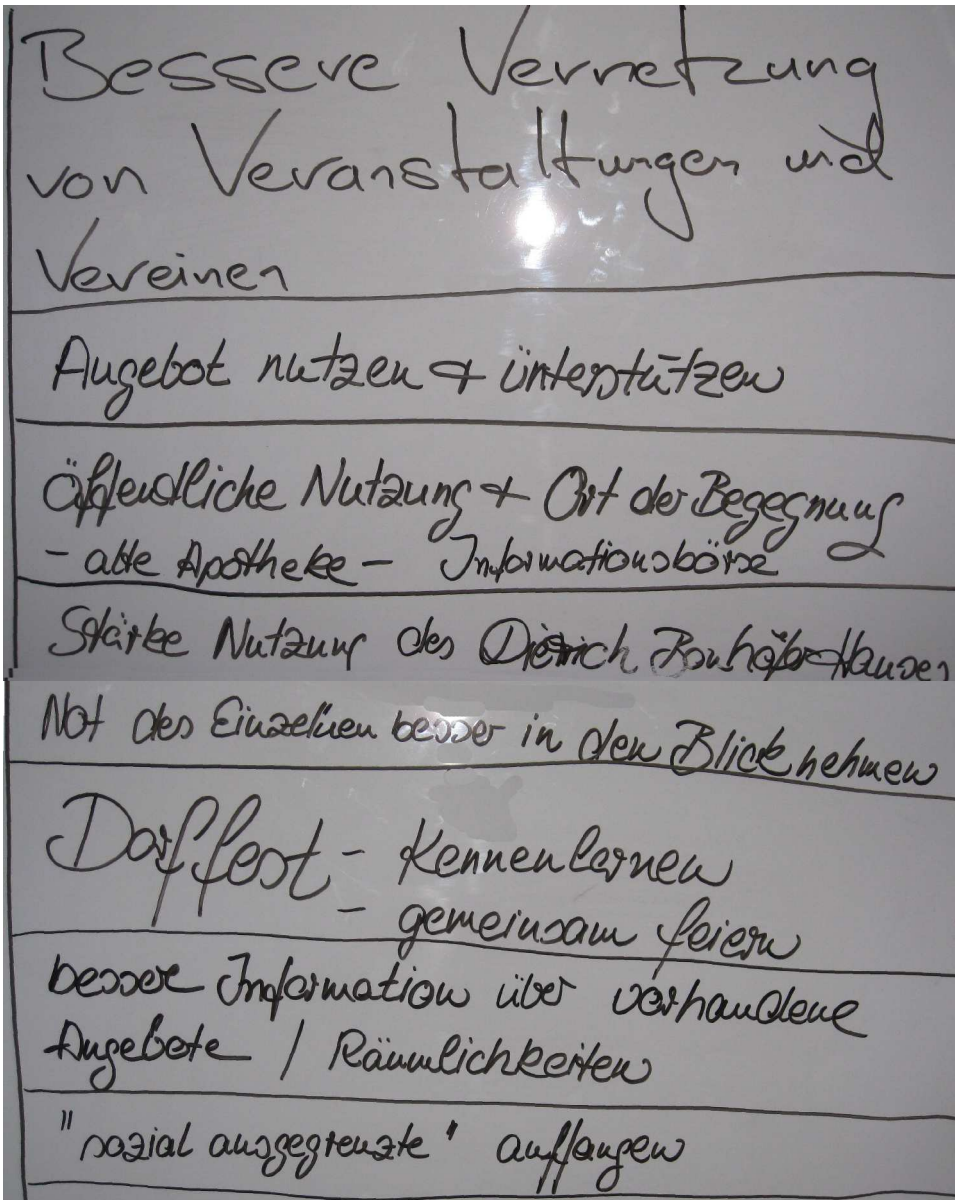 Bessere Vernetzung
von Veranstaltungen und
Vereinen
Angebot nutzen + unterstützen
Öffendliche Nutzung + Ort der Begegnung
- alte Apotheke - Informationsbörse
Stärke Nutzung des Dietrich Bonhöfer-Hauses
Not des Einzelnen besser in den Blick nehmen
Dorffest - Kennenlernen
- gemeinsam feiern
besser Information über vorhandene
Angebote / Räumlichkeiten
"sozial ausgegrenzte" auffangen